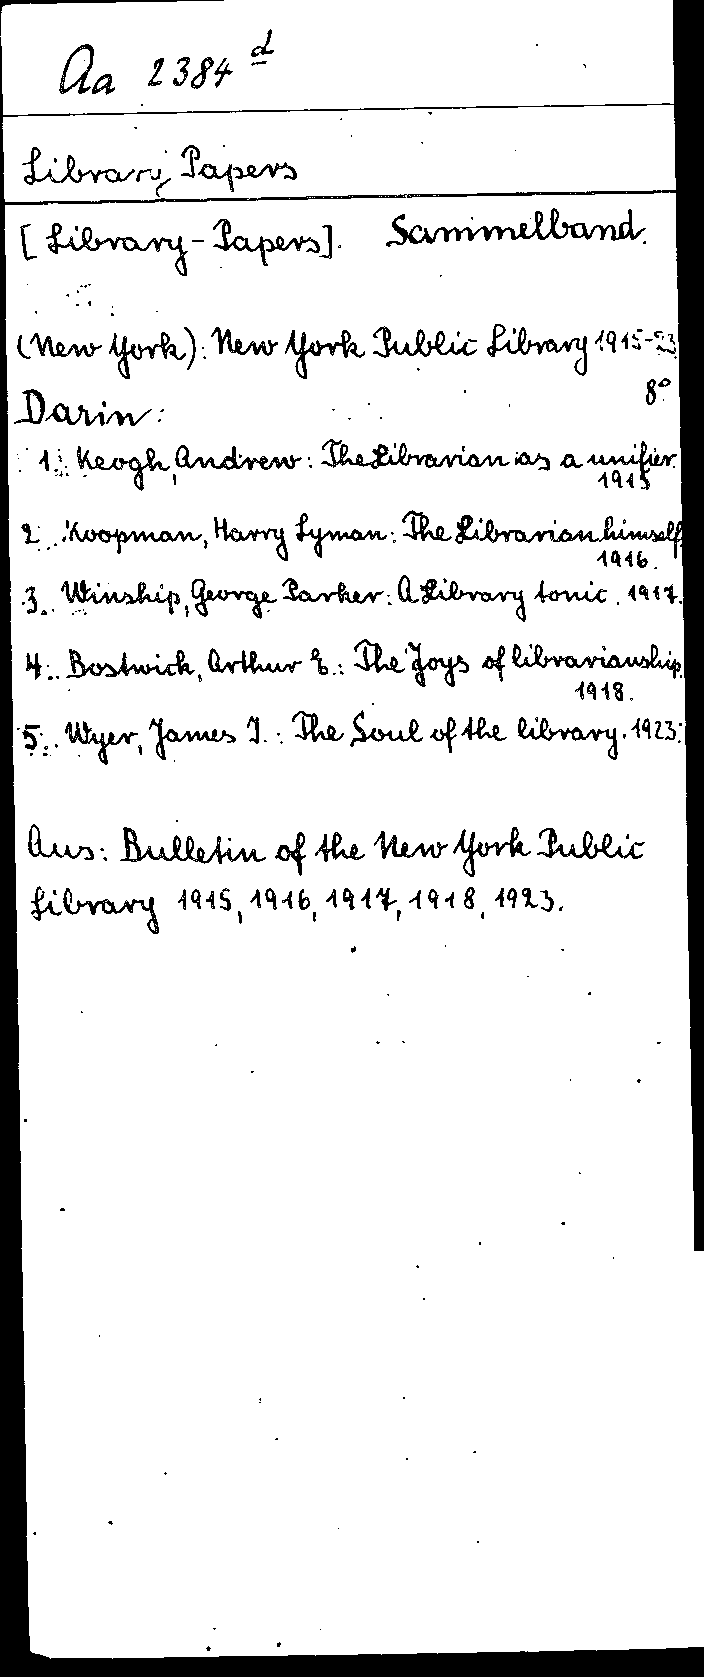 Aa 2384 d
Library Papers
[Library-Papers]. Sammelband.
(New York): New York Public Library 1915-23
8°
Darin:
1. Keogh, Andrew: The Librarian as a unifier.
1915
2. Koopman, Harry Lyman: The Librarian himself.
1916.
3. Winship, George Parker: A Library tonic. 1917.
4. Bostwick, Arthur E.: The Joys of librarianship.
1918.
5. Wyer, James I.: The Soul of the library. 1923.
Aus: Bulletin of the New York Public
Library 1915, 1916, 1917, 1918, 1923.